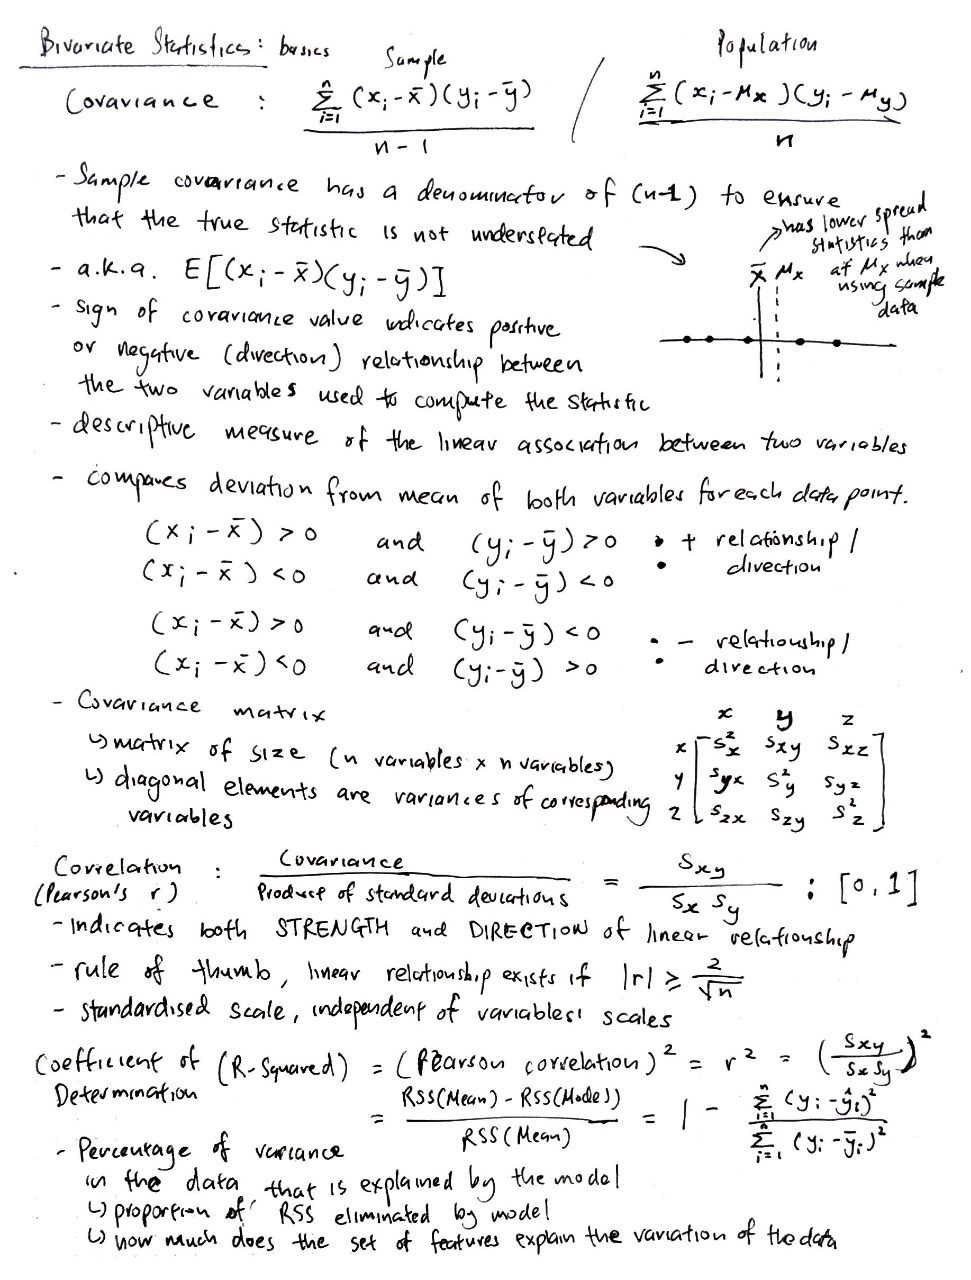 Bivariate Statistics: basics
Sample / Population
Covariance : \frac{\sum_{i=1}^{n} (x_i - \bar{x})(y_i - \bar{y})}{n-1} / \frac{\sum_{i=1}^{n} (x_i - μ_x)(y_i - μ_y)}{n}
- Sample covariance has a denominator of (n-1) to ensure
that the true statistic is not understated
→ has lower spread
statistics than
at μ_x when
using sample
data
\bar{x} μ_x
- a.k.a. E[(x_i - \bar{x})(y_i - \bar{y})]
- sign of covariance value indicates positive
or negative (direction) relationship between
the two variables used to compute the statistic
- descriptive measure of the linear association between two variables
- compares deviation from mean of both variables for each data point.
(x_i - \bar{x}) > 0 and (y_i - \bar{y}) > 0 : + relationship /
direction
(x_i - \bar{x}) < 0 and (y_i - \bar{y}) < 0
(x_i - \bar{x}) > 0 and (y_i - \bar{y}) < 0 : - relationship /
direction
(x_i - \bar{x}) < 0 and (y_i - \bar{y}) > 0
- Covariance matrix
↳ matrix of size (n variables x n variables)
↳ diagonal elements are variances of corresponding
variables
x y z
x s_x^2 s_xy s_xz
y s_yx s_y^2 s_yz
z s_zx s_zy s_z^2
Correlation : \frac{Covariance}{Product of standard deviations} = \frac{S_xy}{S_x S_y} : [0,1]
(Pearson's r)
- Indicates both STRENGTH and DIRECTION of linear relationship
- rule of thumb, linear relationship exists if |r| ≥ \frac{2}{\sqrt{n}}
- standardised scale, independent of variables' scales
Coefficient of (R-Squared) = (Pearson correlation)^2 = r^2 = (\frac{S_xy}{S_x S_y})^2
Determination
= \frac{RSS(Mean) - RSS(Model)}{RSS(Mean)} = 1 - \frac{\sum_{i=1}^{n} (y_i - \hat{y}_i)^2}{\sum_{i=1}^{n} (y_i - \bar{y}_i)^2}
- Percentage of variance
in the data that is explained by the model
↳ proportion of RSS eliminated by model
↳ how much does the set of features explain the variation of the data